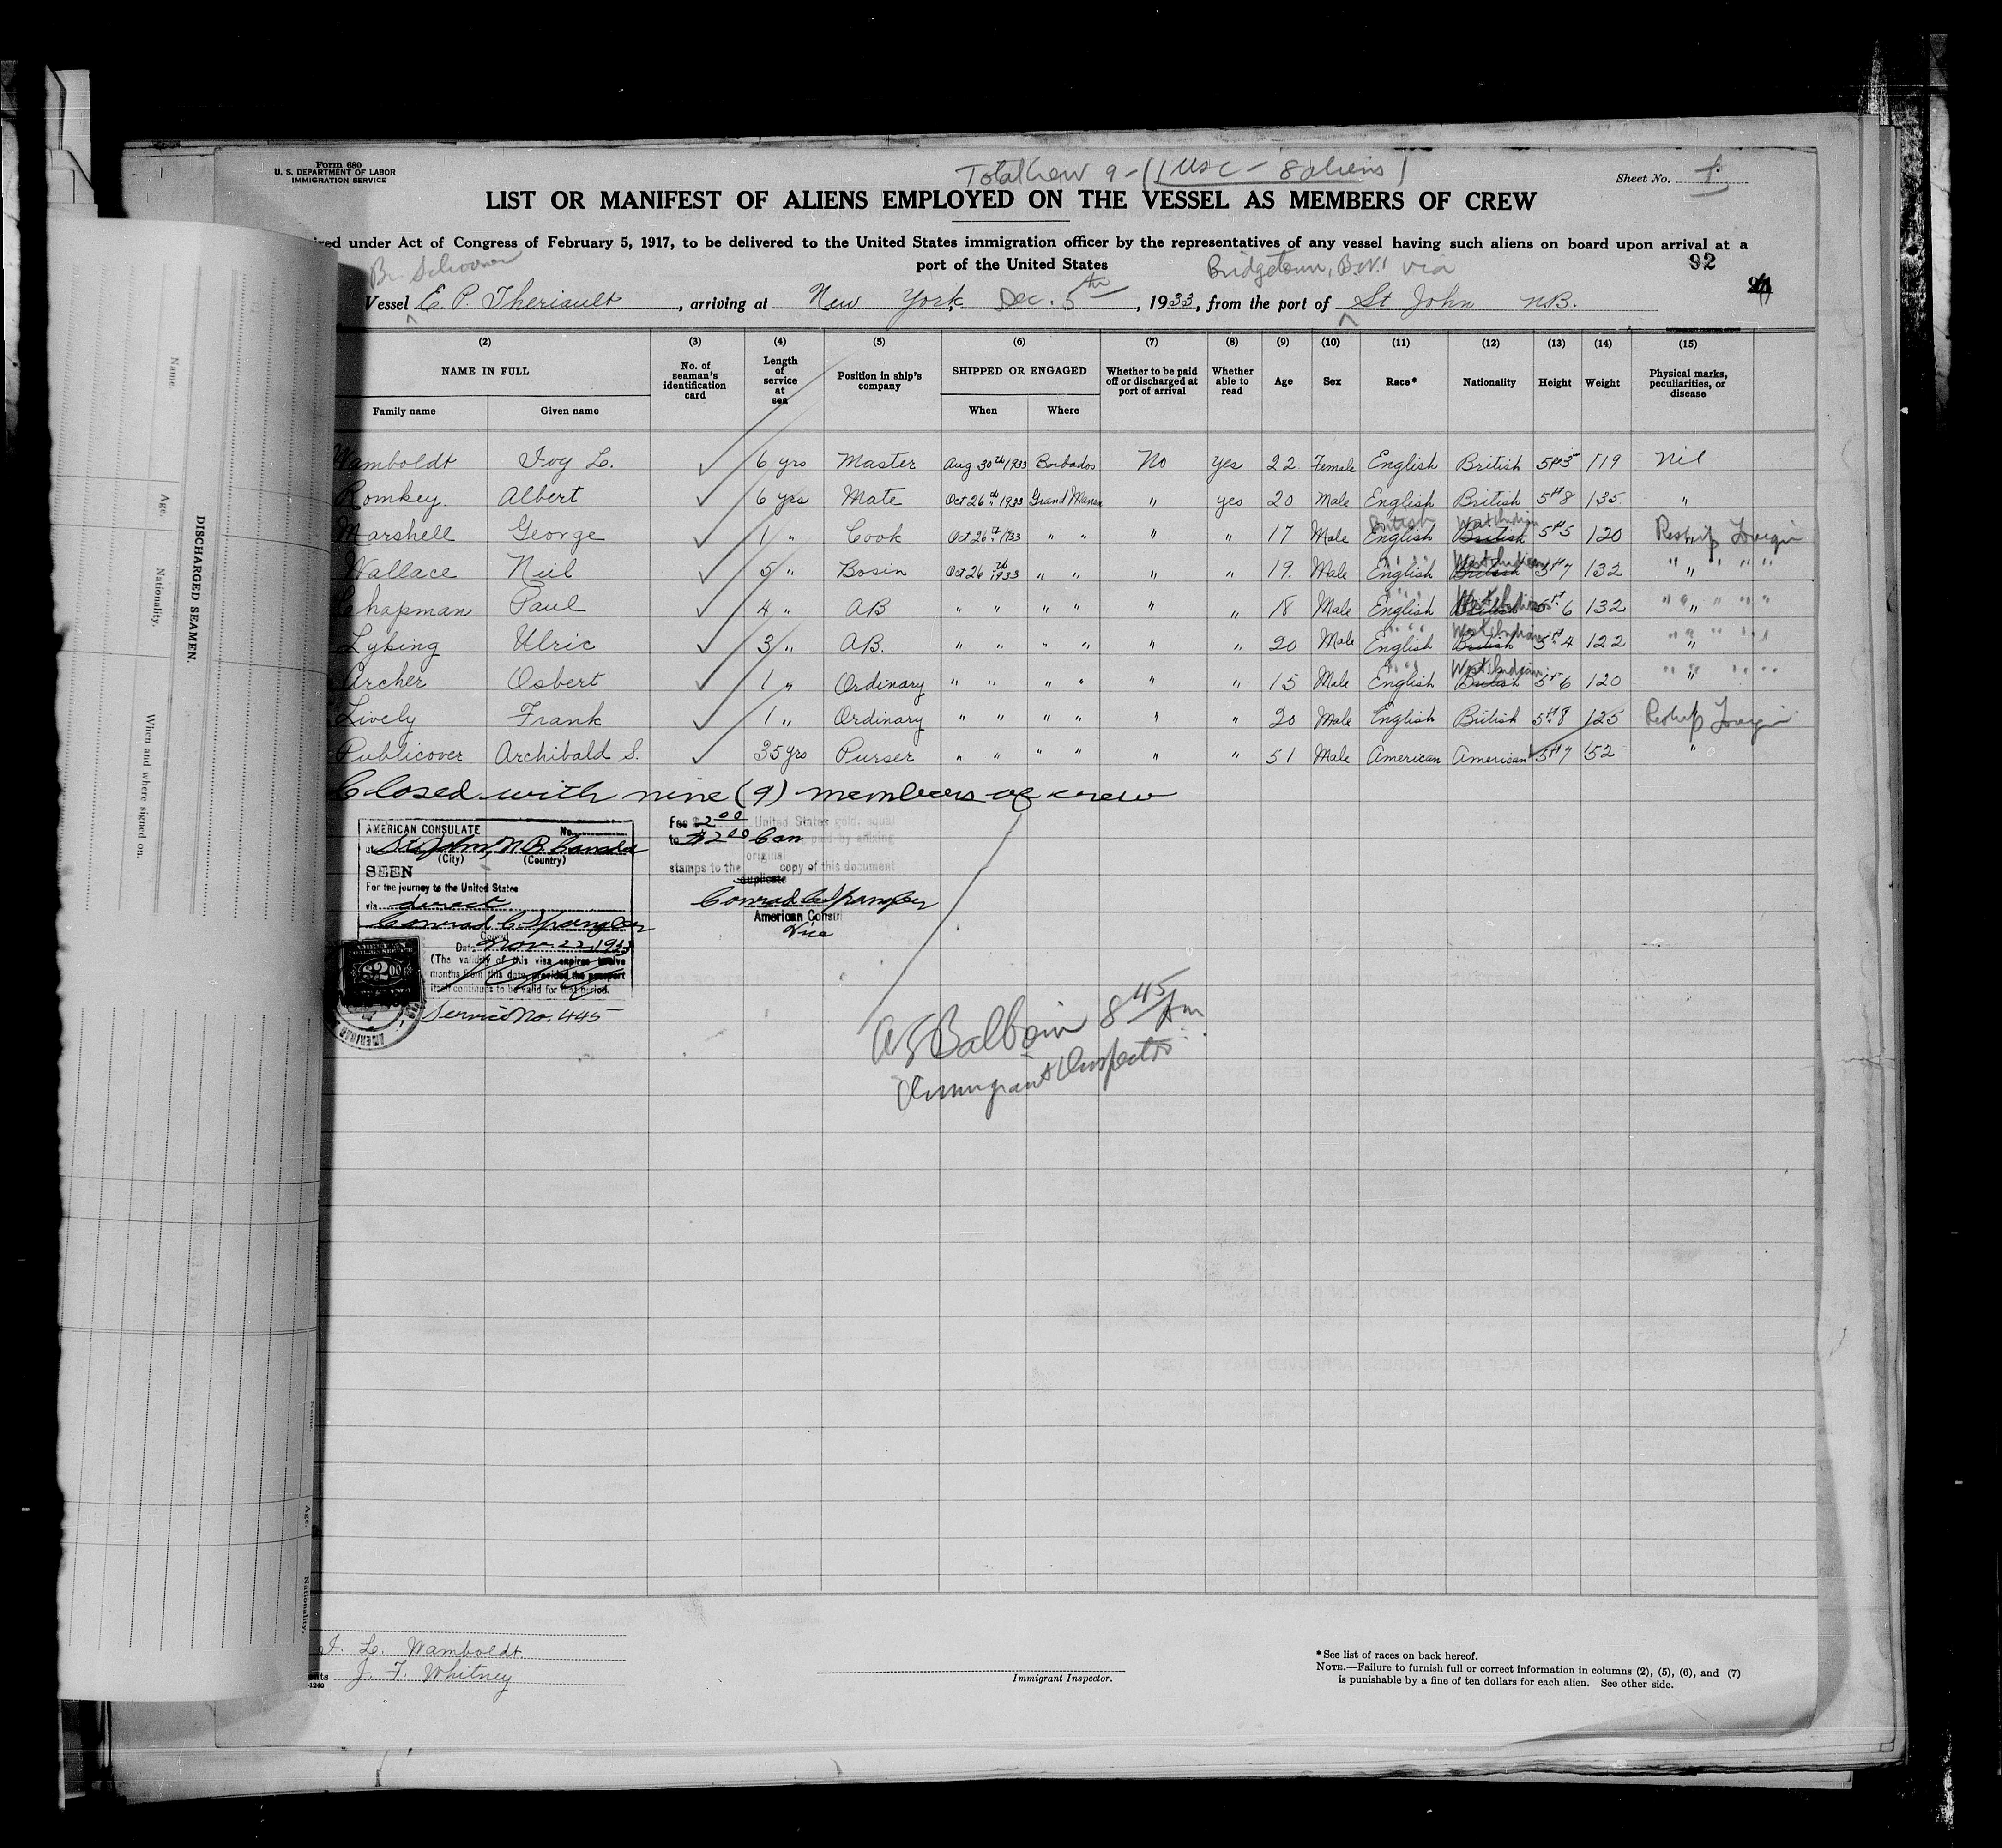 Form 680
U. S. DEPARTMENT OF LABOR
IMMIGRATION SERVICE
Total Crew 9 - (1 USC - 8 aliens)
Sheet No. 1
LIST OR MANIFEST OF ALIENS EMPLOYED ON THE VESSEL AS MEMBERS OF CREW
ired under Act of Congress of February 5, 1917, to be delivered to the United States immigration officer by the representatives of any vessel having such aliens on board upon arrival at a
port of the United States
92
Br. Schooner
Bridgetown, B.W.I via
Vessel E. P. Theriault, arriving at New York, Dec. 5th, 1933, from the port of St John N.B.
(2) (3) (4) (5) (6) (7) (8) (9) (10) (11) (12) (13) (14) (15)
NAME IN FULL No. of seaman's identification card Length of service at sea Position in ship's company SHIPPED OR ENGAGED Whether to be paid off or discharged at port of arrival Whether able to read Age Sex Race* Nationality Height Weight Physical marks, peculiarities, or disease
Family name Given name When Where
Wamboldt Ivy L. ✓ 6 yrs Master Aug 30th 1933 Barbados No Yes 22 Female English British 5ft 3 119 Nil
Romkey Albert ✓ 6 yrs Mate Oct 26th 1933 Grand Manan " yes 20 Male English British 5ft 8 135 "
Marshell George ✓ 1 " Cook Oct 26th 1933 " " " " 17 Male English British British West Indian 5ft 5 120 Reship Foreign
Wallace Neil ✓ 5 " Bosin Oct 26th 1933 " " " " 19 Male English " " British West Indian 5ft 7 132 " " "
Chapman Paul ✓ 4 " AB " " " " " " 18 Male English " " British West Indian 5ft 6 132 " " "
Lyking Ulric ✓ 3 " AB. " " " " " " 20 Male English " " British West Indian 5ft 4 122 " " "
Archer Osbert ✓ 1 " Ordinary " " " " " " 15 Male English " " British West Indian 5ft 6 120 " " "
Lively Frank ✓ 1 " Ordinary " " " " " " 20 Male English British 5ft 8 125 Reship Foreign
Publicover Archibald S. ✓ 35 yrs Purser " " " " " " 51 Male American American 5ft 7 152 "
Closed with nine (9) members of crew
AMERICAN CONSULATE No.
at St. John, N.B. Canada
(City) (Country)
SEEN
For the journey to the United States
via direct
Conrad C. Spangler
Consul
Date Nov. 22, 1933
(The validity of this visa expires twelve
months from this date, provided the passport
itself continues to be valid for that period.
Service No. 445
$2.00
Fee $2.00 United States gold, equal
to $2.00 Can by affixing
original
stamps to the copy of this document
duplicate
Conrad C. Spangler
American Consul
Vice
8 45 Am
Immigrant Inspector
I. L. Wamboldt
J. F. Whitney
-1240
Immigrant Inspector.
* See list of races on back hereof.
NOTE.—Failure to furnish full or correct information in columns (2), (5), (6), and (7)
is punishable by a fine of ten dollars for each alien. See other side.
DISCHARGED SEAMEN.
Name. Age. Nationality. When and where signed on.
Name. Age. Nationality.